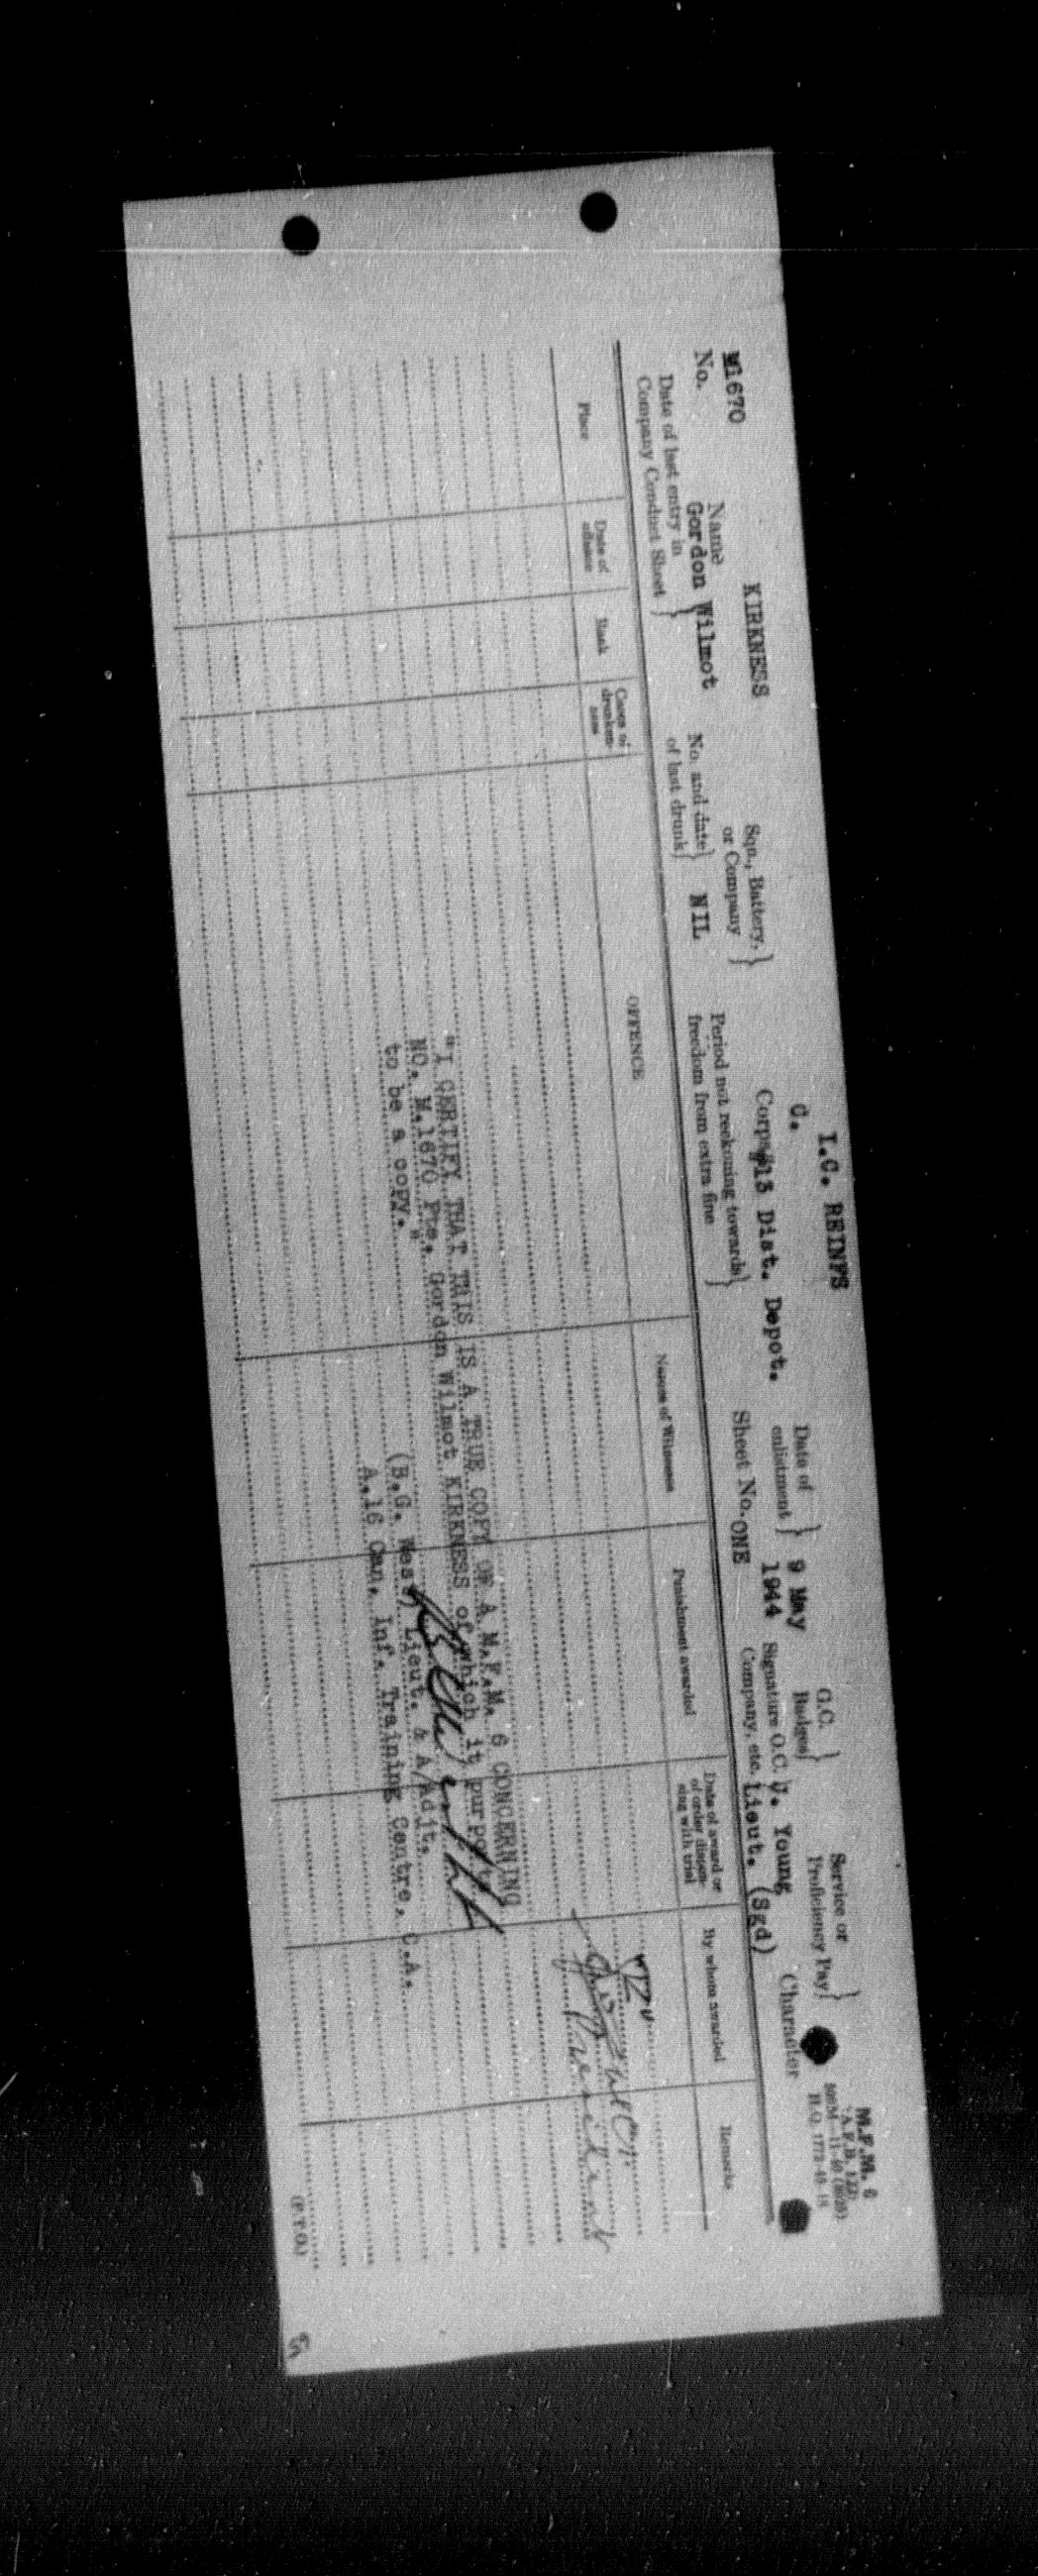 M.F.M. 6
I.C. REINFS
G.
KIRKNESS
M1670
No.
Name
Gordon Wilmot
Sqn., Battery,
or Company
Corps #13 Dist. Depot.
Date of
enlistment
9 May
1944
G.C.
Badges
Service or
Proficiency Pay
Character
Date of last entry in
Company Conduct Sheet
No. and date
of last drunk
NIL
Period not reckoning towards
freedom from extra fine
Sheet No. ONE
Signature O.C.
Company, etc.
J. Young
Lieut. (Sgd)
Place
Date of
offence
Rank
Cases of
drunken-
ness
OFFENCE
Names of Witnesses
Punishment awarded
Date of award or
of order dispen-
sing with trial
By whom awarded
Remarks
"I CERTIFY THAT THIS IS A TRUE COPY OF A M.F.M. 6 CONCERNING
NO. M.1670 Pte. Gordon Wilmot KIRKNESS of which it purports
to be a copy."
(B.G. West) Lieut. & A/Adjt.
A.16 Can. Inf. Training Centre, C.A.
(P.T.O.)